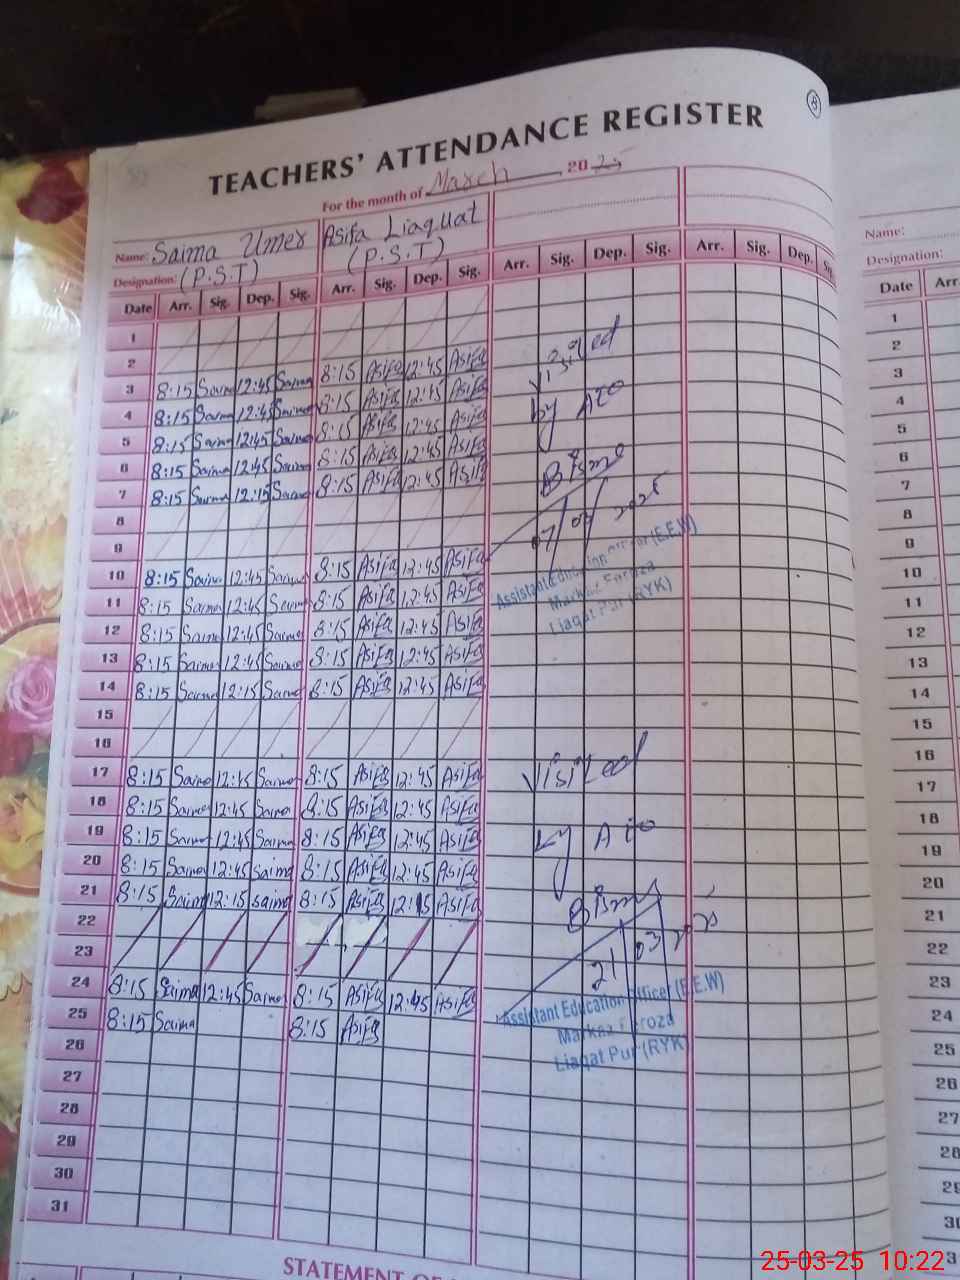 B
TEACHERS' ATTENDANCE REGISTER
For the month of March, 2025
Name: Saima Umer Asifa Liaquat
Designation: (P.S.T) (P.S.T)
Date Arr. Sig. Dep. Sig. Arr. Sig. Dep. Sig. Arr. Sig. Dep. Sig. Arr. Sig. Dep.
1
2
3 8:15 Saima 12:45 Saima 8:15 Asifa 12:45 Asifa
4 8:15 Saima 12:45 Saima 8:15 Asifa 12:45 Asifa
5 8:15 Saima 12:45 Saima 8:15 Asifa 12:45 Asifa
6 8:15 Saima 12:45 Saima 8:15 Asifa 12:45 Asifa
7 8:15 Saima 12:15 Saima 8:15 Asifa 12:45 Asifa
8
9
10 8:15 Saima 12:45 Saima 8:15 Asifa 12:45 Asifa
11 8:15 Saima 12:45 Saima 8:15 Asifa 12:45 Asifa
12 8:15 Saima 12:45 Saima 8:15 Asifa 12:45 Asifa
13 8:15 Saima 12:45 Saima 8:15 Asifa 12:45 Asifa
14 8:15 Saima 12:15 Saima 8:15 Asifa 12:45 Asifa
15
16
17 8:15 Saima 12:45 Saima 8:15 Asifa 12:45 Asifa
18 8:15 Saima 12:45 Saima 8:15 Asifa 12:45 Asifa
19 8:15 Saima 12:45 Saima 8:15 Asifa 12:45 Asifa
20 8:15 Saima 12:45 Saima 8:15 Asifa 12:45 Asifa
21 8:15 Saima 12:15 Saima 8:15 Asifa 12:15 Asifa
22
23
24 8:15 Saima 12:45 Saima 8:15 Asifa 12:45 Asifa
25 8:15 Saima 8:15 Asifa
26
27
28
29
30
31
Visited
by AEO
07/03/2025
Assistant Education Officer (E.E.W)
Markaz Feroza
Liaqat Pur (RYK)
Visited
by
21/03/
Assistant Education Officer (E.E.W)
Markaz Feroza
Liaqat Pur (RYK)
STATEMENT OF
Name:
Designation:
Date Arr.
1
2
3
4
5
6
7
8
9
10
11
12
13
14
15
16
17
18
19
20
21
22
23
24
25
26
27
28
29
30
25-03-25 10:22